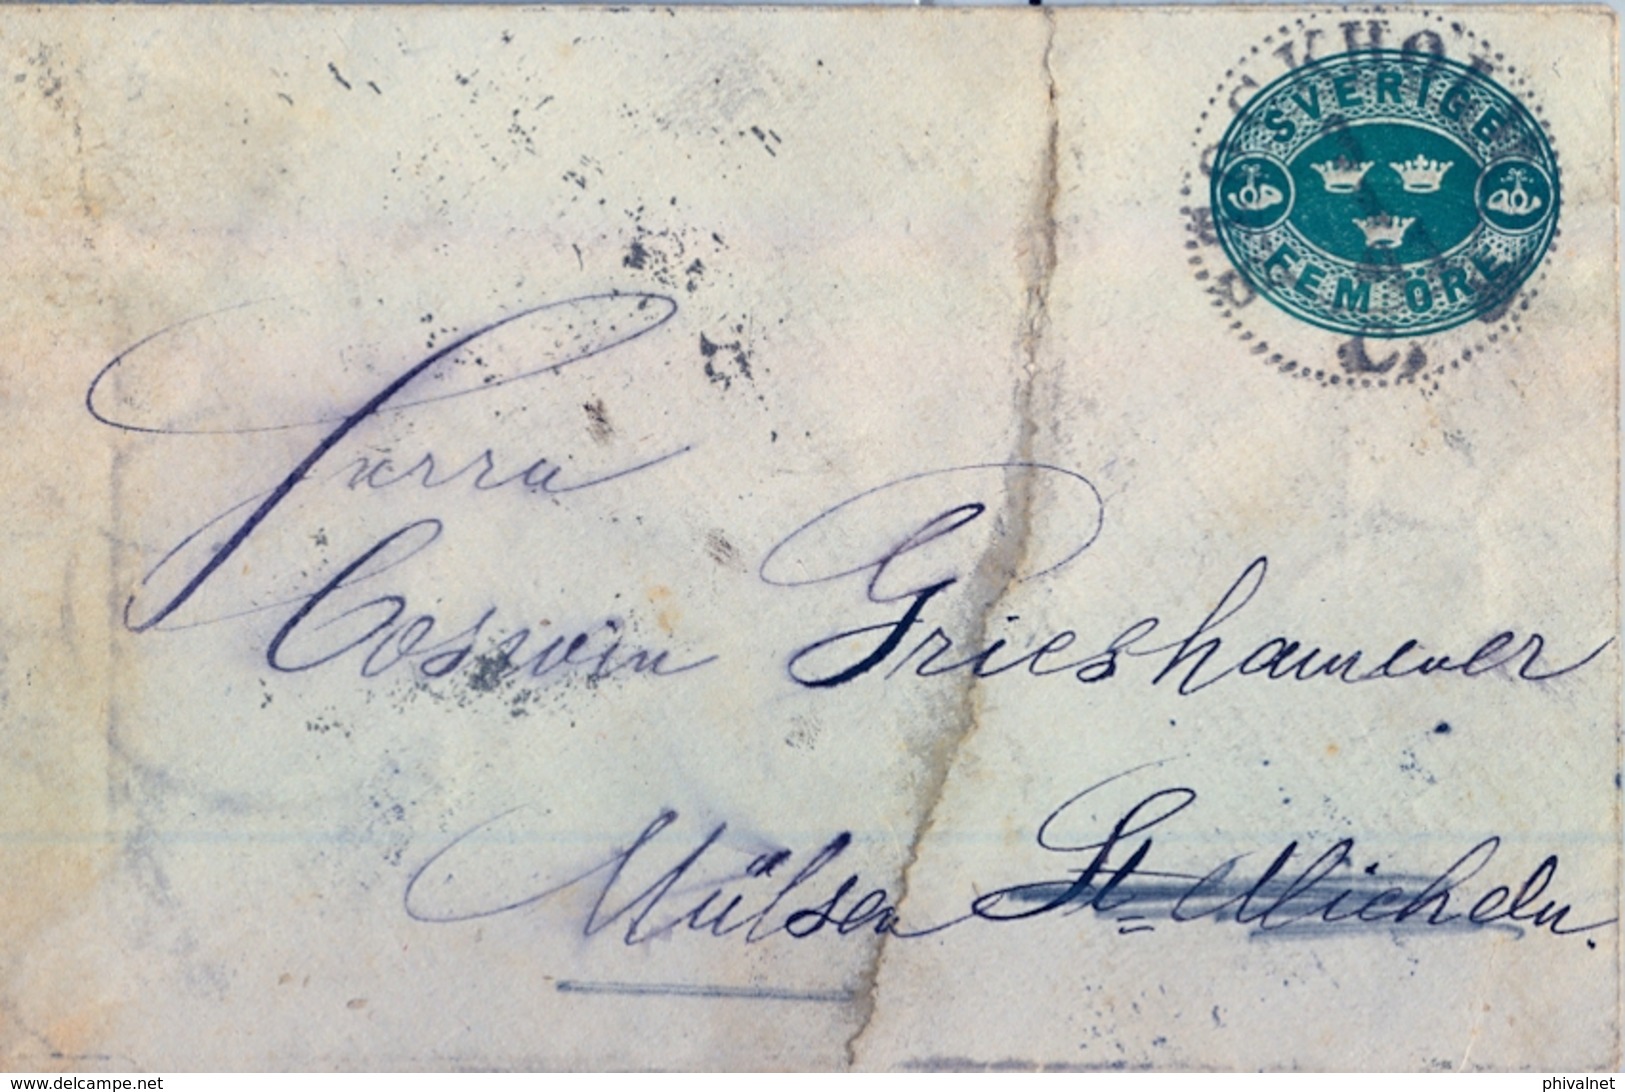 SVERIGE
FEM ÖRE
Herrn
Oswin Grieshammer
Mülsen St. Micheln.
https://www.delcampe.net
phivalnet